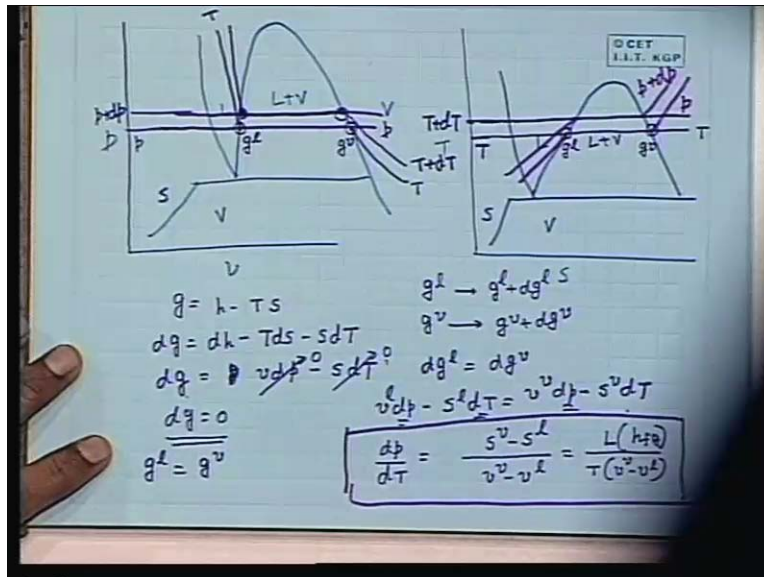 © CET
I.I.T. KGP
T
p+dp
L+V
V
p
p
p
g^l
g^v
T+dT
T
S
V
v
p+dp
p
T+dT
T
T
L
g^l
L+V
g^v
T
S
V
S
g = h - Ts
dg = dh - Tds - sdT
dg = vdp^0 - sdT^0
dg = 0
g^l = g^v
g^l → g^l + dg^l
g^v → g^v + dg^v
dg^l = dg^v
v^l dp - s^l dT = v^v dp - s^v dT
dp/dT = (s^v - s^l)/(v^v - v^l) = L(hfg)/T(v^v - v^l)